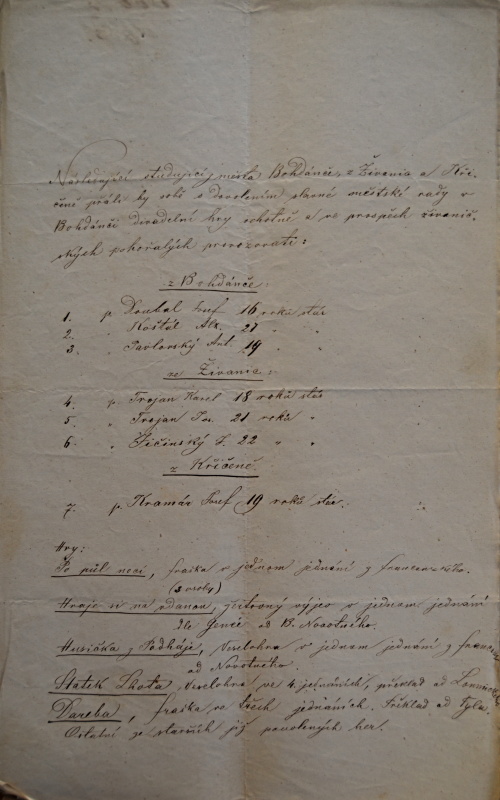 Následující studující z města Bohdánče, z Živanic a Kři-
čeně přáli by sobě s dovolením slavné městské rady v
Bohdánči divadelní hry ochotně a ve prospěch živanic-
kých pohořalých provozovati:
z Bohdánče:
1. p. Doubal Josef 16 roků stár
2. " Košťál Alk. 27 " "
3. " Pavlovský Ant. 19 " "
ze Živanic:
4. p. Trojan Karel 18 roků stár
5. " Trojan Jos. 21 roků "
6. " Jičinský J. 22 " "
z Křičeně.
7. p. Kramár Josef 19 roků stár.
Hry:
Po půl noci, fraška v jednom jednání z francouzského.
(3 osoby)
Hraje si na , žertovný výjev v jednom jednání
dle od B. Novotného.
Husička z Podháje, Veselohra v jednom jednání z
od Novotného.
Statek Lhota, Veselohra ve 4 jednáních, překlad od
Dareba, fraška ve třech jednáních. Překlad od Tyla.
Ostatní ze starších již povolených her.